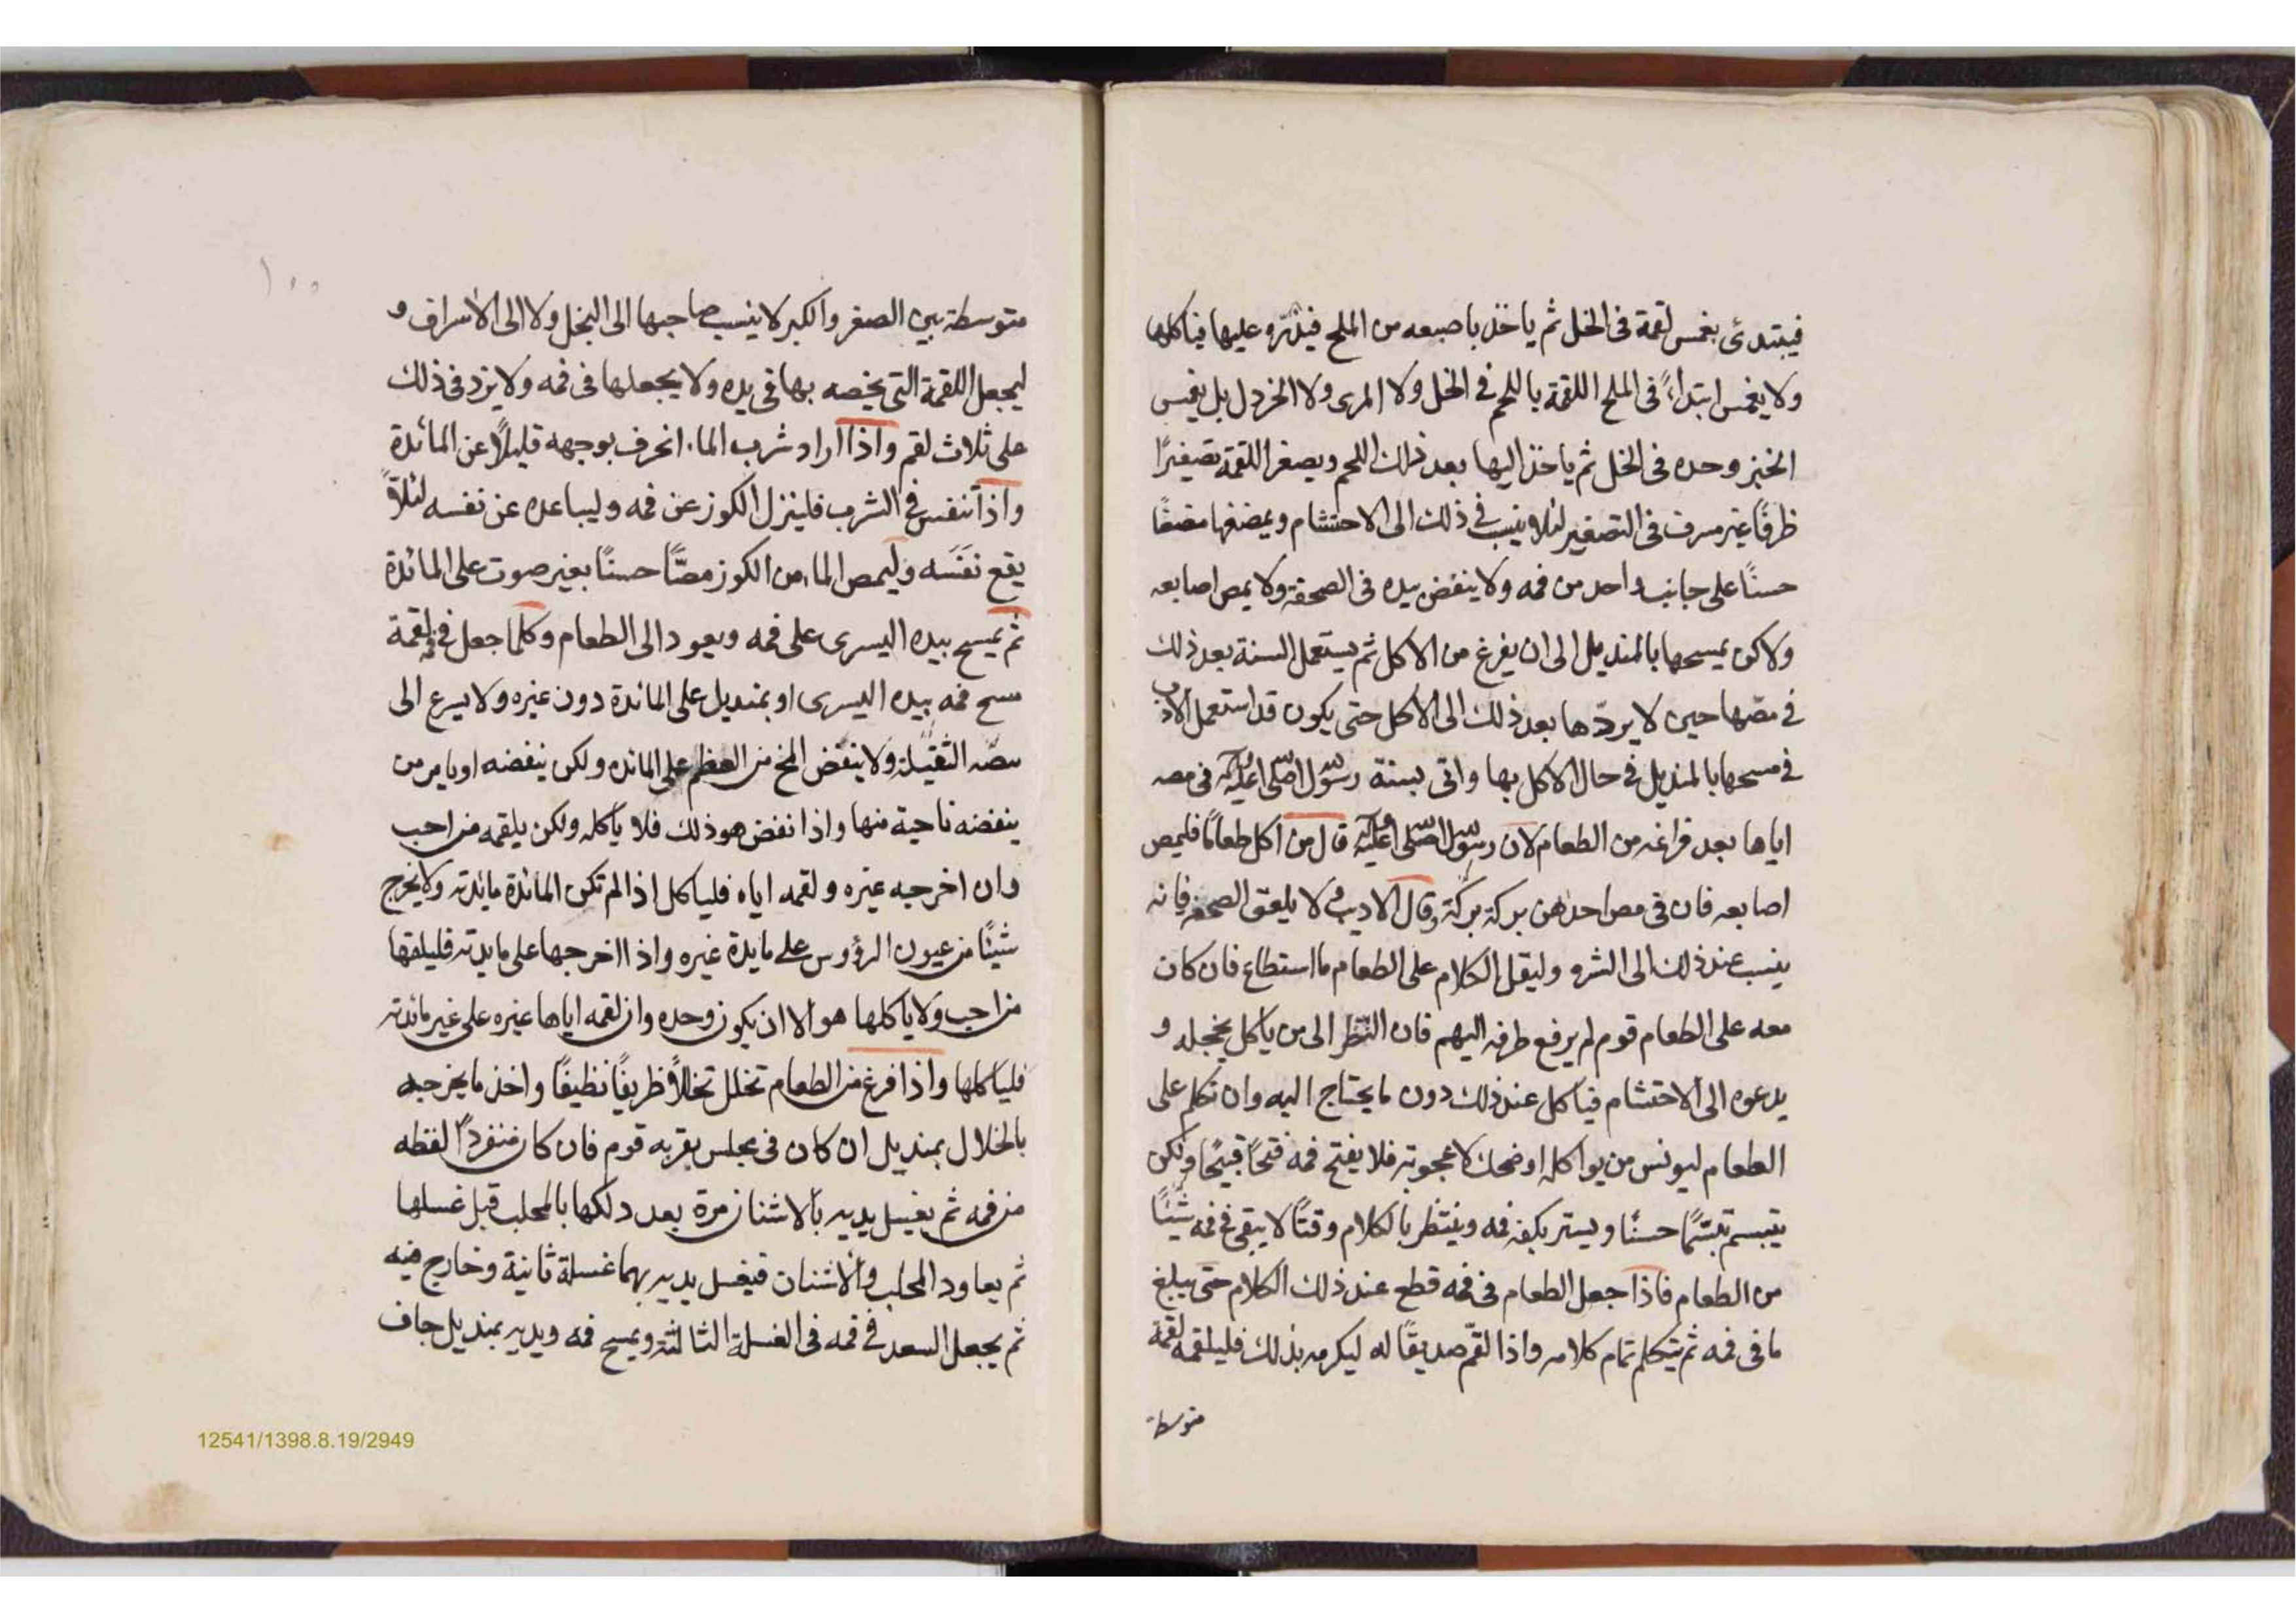 فيبتدئ بغمس لقمة فى الخل ثم ياخذ باصبعه من الملح فيذرّه عليها فياكلها
ولا يغمس ابتداءً فى الملح اللقمة باللحم فى الخل ولا المرى ولا الخردل بل يغمس
الخبز وحده فى الخل ثم ياخذ اليها بعد ذلك اللحم ويصغر اللقمة تصغيرًا
ظرفًا غير مسرف فى التصغير لئلا ينسب فى ذلك الى الاحتشام ويمضغها مضغًا
حسنًا على جانب واحد من فمه ولا ينفض يده فى الصحفة ولا يمص اصابعه
ولاكن يمسحها بالمنديل الى ان يفرغ من الاكل ثم يستعمل السنة بعد ذلك
فى مصّها حين لا يردّها بعد ذلك الى الاكل حتى يكون قد استعمل الادب
فى مسحها بالمنديل فى حال الاكل بها واتى بسنة رسول الله صلى الله عليه وآله فى مصه
اياها بعد فراغه من الطعام لان رسول الله صلى الله عليه وآله قال من اكل طعامًا فليمص
اصابعه فان فى مص احدهن بركة بركة وقال الاديب لا يلعق الصحفة فانه
ينسب عند ذلك الى الشره وليقل الكلام على الطعام ما استطاع فان كان
معه على الطعام قوم لم يرفع طرفه اليهم فان النظر الى من ياكل يخجله و
يدعوه الى الاحتشام فياكل عند ذلك دون ما يحتاج اليه وان تكلم على
الطعام ليونس من يواكله او ضحك لاعجوبة فلا يفتح فمه فتحًا قبيحًا ولكن
يتبسم تبسّمًا حسنًا ويستر بكفه فمه وينتظر بالكلام وقتًا لا يبقى فى فمه شيئًا
من الطعام فاذا جعل الطعام فى فمه قطع عند ذلك الكلام حتى يبلغ
ما فى فمه ثم يتكلم تمام كلامه واذا لقّم صديقًا له ليكرمه بذلك فليلقمه لقمة
متوسطة
١٠٠
متوسطة بين الصغر والكبر لا ينسب صاحبها الى البخل ولا الى الاسراف و
ليجعل اللقمة التى يخصه بها فى يده ولا يجعلها فى فمه ولا يزد فى ذلك
على ثلاث لقم واذا اراد شرب الماء انحرف بوجهه قليلًا عن المائدة
واذا تنفس فى الشرب فلينزل الكوز عن فمه وليباعده عن نفسه لئلّا
يقع نفَسَه وليمص الماء من الكوز مصًّا حسنًا بغير صوت على المائدة
ثم يمسح بيده اليسرى على فمه ويعود الى الطعام وكلما جعل فى فمه لقمة
مسح فمه بيده اليسرى او بمنديل على المائدة دون غيره ولا يسرع الى
مصّه الثقيلة ولا ينفض المخ من العظم على المائده ولكن ينفضه او يامر من
ينفضه ناحية منها واذا نفض هو ذلك فلا ياكله ولكن يلقمه من احب
وان اخرجه غيره ولقمه اياه فلياكل اذا لم تكن المائدة مايدته ولا يخرج
شيئًا من عيون الرؤوس على مايدة غيره واذا اخرجها على مايدته فليلقها
من احب ولا ياكلها هو الا ان يكون وحده وان لقمه اياها غيره على غير مائدته
فلياكلها واذا فرغ من الطعام تخلل تخللًا ظريفًا نظيفًا واخذ ما يخرجه
بالخلال بمنديل ان كان فى مجلس بقربه قوم فان كان منفردًا لفظه
من فمه ثم يغسل يديه بالاشنان مرة بعد دلكها بالمحلب قبل غسلها
ثم يعاود المحلب والاشنان فيغسل يديه بهما غسلة ثانية وخارج فيه
ثم يجعل السعد فى فمه فى الغسلة الثالثة ويمسح فمه ويديه بمنديل جاف
12541/1398.8.19/2949